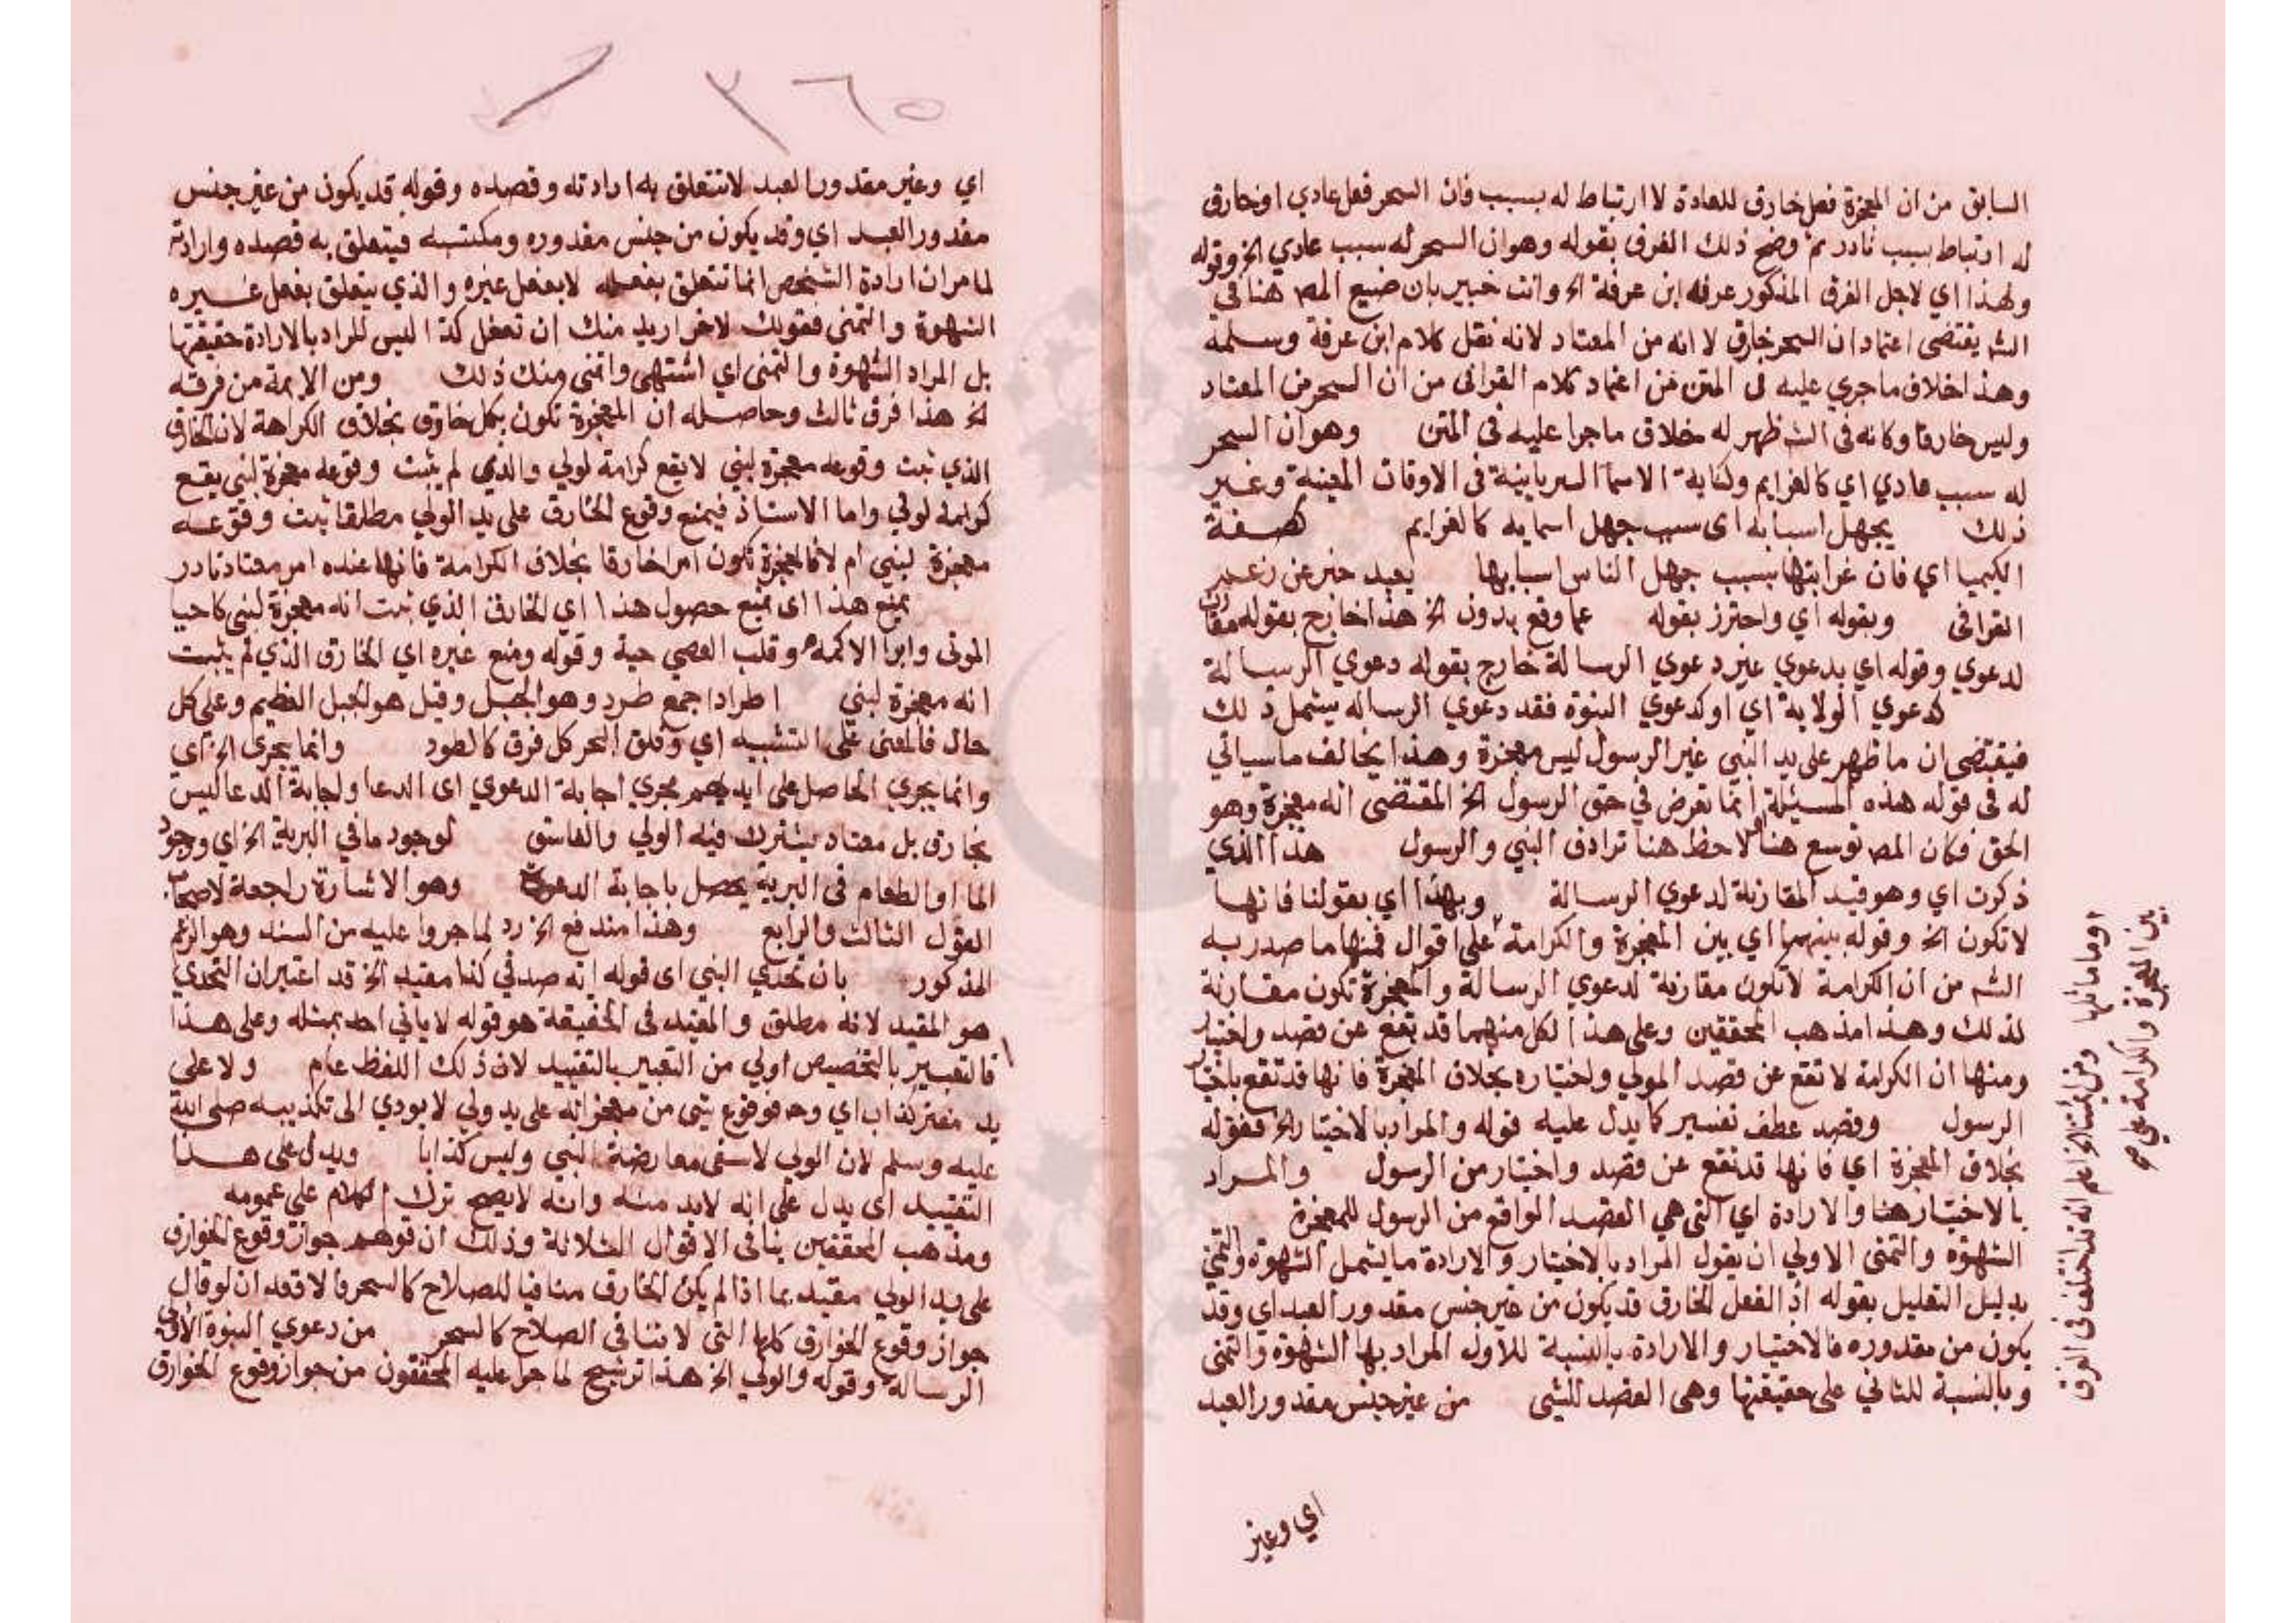 السابق من ان المعجزة فعل خارق للعادة لا ارتباط له بسبب فان السحر فعل عادي او خارق
له ارتباط بسبب نادر ثم وضح ذلك الفرق بقوله وهو ان السحر له سبب عادي الخ وقوله
ولهذا اي لاجل الفرق المذكور عرفه ابن عرفة الخ وانت خبير بان صنيع المص هنا في
الشـ يقتضى اعتماد ان السحر خارق لا انه من المعتاد لانه نقل كلام ابن عرفة وسلمه
وهذا خلاف ما جري عليه في المتن من اعتماد كلام القرافى من ان السحر من المعتاد
وليس خارقا وكانه فى الشـ ظهر له خلاف ما جرا عليه فى المتن وهو ان السحر
له سبب عادي اي كالعزايم وكتابة الاسما السريانية فى الاوقات المعينة وغير
ذلك يجهل اسبابه اى سبب جهل اسبابه كالعزايم كصفة
الكيميا اي فان غرابتها بسبب جهل الناس اسبابها بعيد خبر عن زعم
القرافى وبقوله اي واحترز بقوله عما وقع بدون الخ هذا خارج بقوله مقارن
لدعوي وقوله اي بدعوي غير دعوي الرسالة خارج بقوله دعوي الرسالة
كدعوي الولاية اي او كدعوي النبوة فقد دعوي الرساله يشمل ذلك
فيقتضى ان ما ظهر على يد النبي غير الرسول ليس معجزة وهذا يخالف ما سياتي
له فى قوله هذه المسئلة انما تعرض في حق الرسول الخ المقتضى انه معجزة وهو
الحق فكان المص توسع هنا لاحظ هنا ترادف النبي والرسول هذا الذي
ذكرت اي وهو قيد المقارنة لدعوي الرسالة وبهذا اي بقولنا فانها
لا تكون الخ وقوله بينهما اي بين المعجزة والكرامة على اقوال فمنها ما صدر به
الشـ من ان الكرامة لا تكون مقارنة لدعوي الرسالة والمعجزة تكون مقارنة
لذلك وهذا مذهب المحققين وعلى هذا لكل منهما قد يقع عن قصد واختيار
ومنها ان الكرامة لا تقع عن قصد الولي واختياره بخلاف المعجزة فانها قد تقع باختيار
الرسول وقصد عطف تفسير كما يدل عليه قوله والمراد بالاختيار الخ فقوله
بخلاف المعجزة اي فانها قد تقع عن قصد واختيار من الرسول والمراد
بالاختيار هنا والارادة اي التي هي القصد الواقع من الرسول للمعجزة
الشهوة والتمنى الاولي ان يقول المراد بالاختيار والارادة ما يشمل الشهوة والتمني
بدليل التعليل بقوله اذ الفعل الخارق قد يكون من غير جنس مقدور العبد اي وقد
يكون من مقدوره فالاختيار والارادة بالنسبة للاول المراد بها الشهوة والتمنى
وبالنسبة للثاني على حقيقتها وهى القصد للشي من غير جنس مقدور العبد
اي وغير
وما ماثلها ومن ائمتنا الخ اعلم انه قد اختلف فى الفرق
بين المعجزة والكرامة على صح
٣٦٥
اي وغير مقدور العبد لا تتعلق به ارادته وقصده وقوله قد يكون من غير جنس
مقدور العبد اي وقد يكون من جنس مقدوره ومكتسبه فيتعلق به قصده وارادته
لما مر ان ارادة الشخص انما تتعلق بفعله لا بفعل غيره والذي يتعلق بفعل غيره
الشهوة والتمنى فقولك لاخر اريد منك ان تفعل كذا ليس المراد بالارادة حقيقتها
بل المراد الشهوة والتمنى اي اشتهى واتمنى منك ذلك ومن الايمة من فرقه
الخ هذا فرق ثالث وحاصله ان المعجزة تكون بكل خارق بخلاف الكرامة لان الخارق
الذي ثبت وقوعه معجزة لنبي لا يقع كرامة لولي والذي لم يثبت وقوعه معجزة لنبي يقع
كرامة لولي واما الاستاذ فيمنع وقوع الخارق على يد الولي مطلقا ثبت وقوعه
معجزة لنبي ام لا فالمعجزة تكون امرا خارقا بخلاف الكرامة فانها عنده امر معتاد نادر
يمنع هذا اى يمنع حصول هذا اي الخارق الذي ثبت انه معجزة لنبي كاحيا
الموتى وابرا الاكمه وقلب العصي حية وقوله ومنع غيره اي الخارق الذي لم يثبت
انه معجزة لنبي اطرادا جمع طود وهو الجبل وقيل هو الجبل العظيم وعلى كل
حال فالمعنى على التشبيه اي وفلق البحر كل فرق كالطود وانما يجرى الخ اى
وانما يجري الحاصل على ايديهم مجري اجابة الدعوي اى الدعا واجابة الدعا ليس
بخارق بل معتاد يشترك فيه الولي والفاسق لوجود ما في البرية الخ اي ووجود
الما او الطعام فى البرية يحصل باجابة الدعوة وهو الاشارة راجعة لاصحاب
القول الثالث والرابع وهذا مندفع الخ رد لما جروا عليه من السند وهو الزعم
المذكور بان تحدي النبي اى قوله اية صدقي كذا مقيد الخ قد اعتبر ان التحدي
هو المقيد لانه مطلق والمقيد فى الحقيقة هو قوله لا ياتي احد بمثله وعلى هذا
فالتعبير بالتخصيص اولي من التعبير بالتقييد لان ذلك اللفظ عام ولا على
يد مفتر كذاب اي وح فوقوع شى من معجزاته على يد ولي لا يودي الى تكذيبه صلى الله
عليه وسلم لان الولي معارضة النبي وليس كذابا ويدل على هذا
التقييد اى يدل على انه لابد منه وانه لا يصح ترك الكلام على عمومه
ومذهب المحققين ينافى الاقوال الثلاثة وذلك ان توهم جواز وقوع الخوارق
على يد الولي مقيد بما اذا لم يكن الخارق منافيا للصلاح كالسحر ان لو قال
جواز وقوع الخوارق كلها التى لا تنافى الصلاح كالسحر من دعوي النبوة
الرسالة وقوله والولي الخ هذا ترشيح لما جرا عليه المحققون من جواز وقوع الخوارق